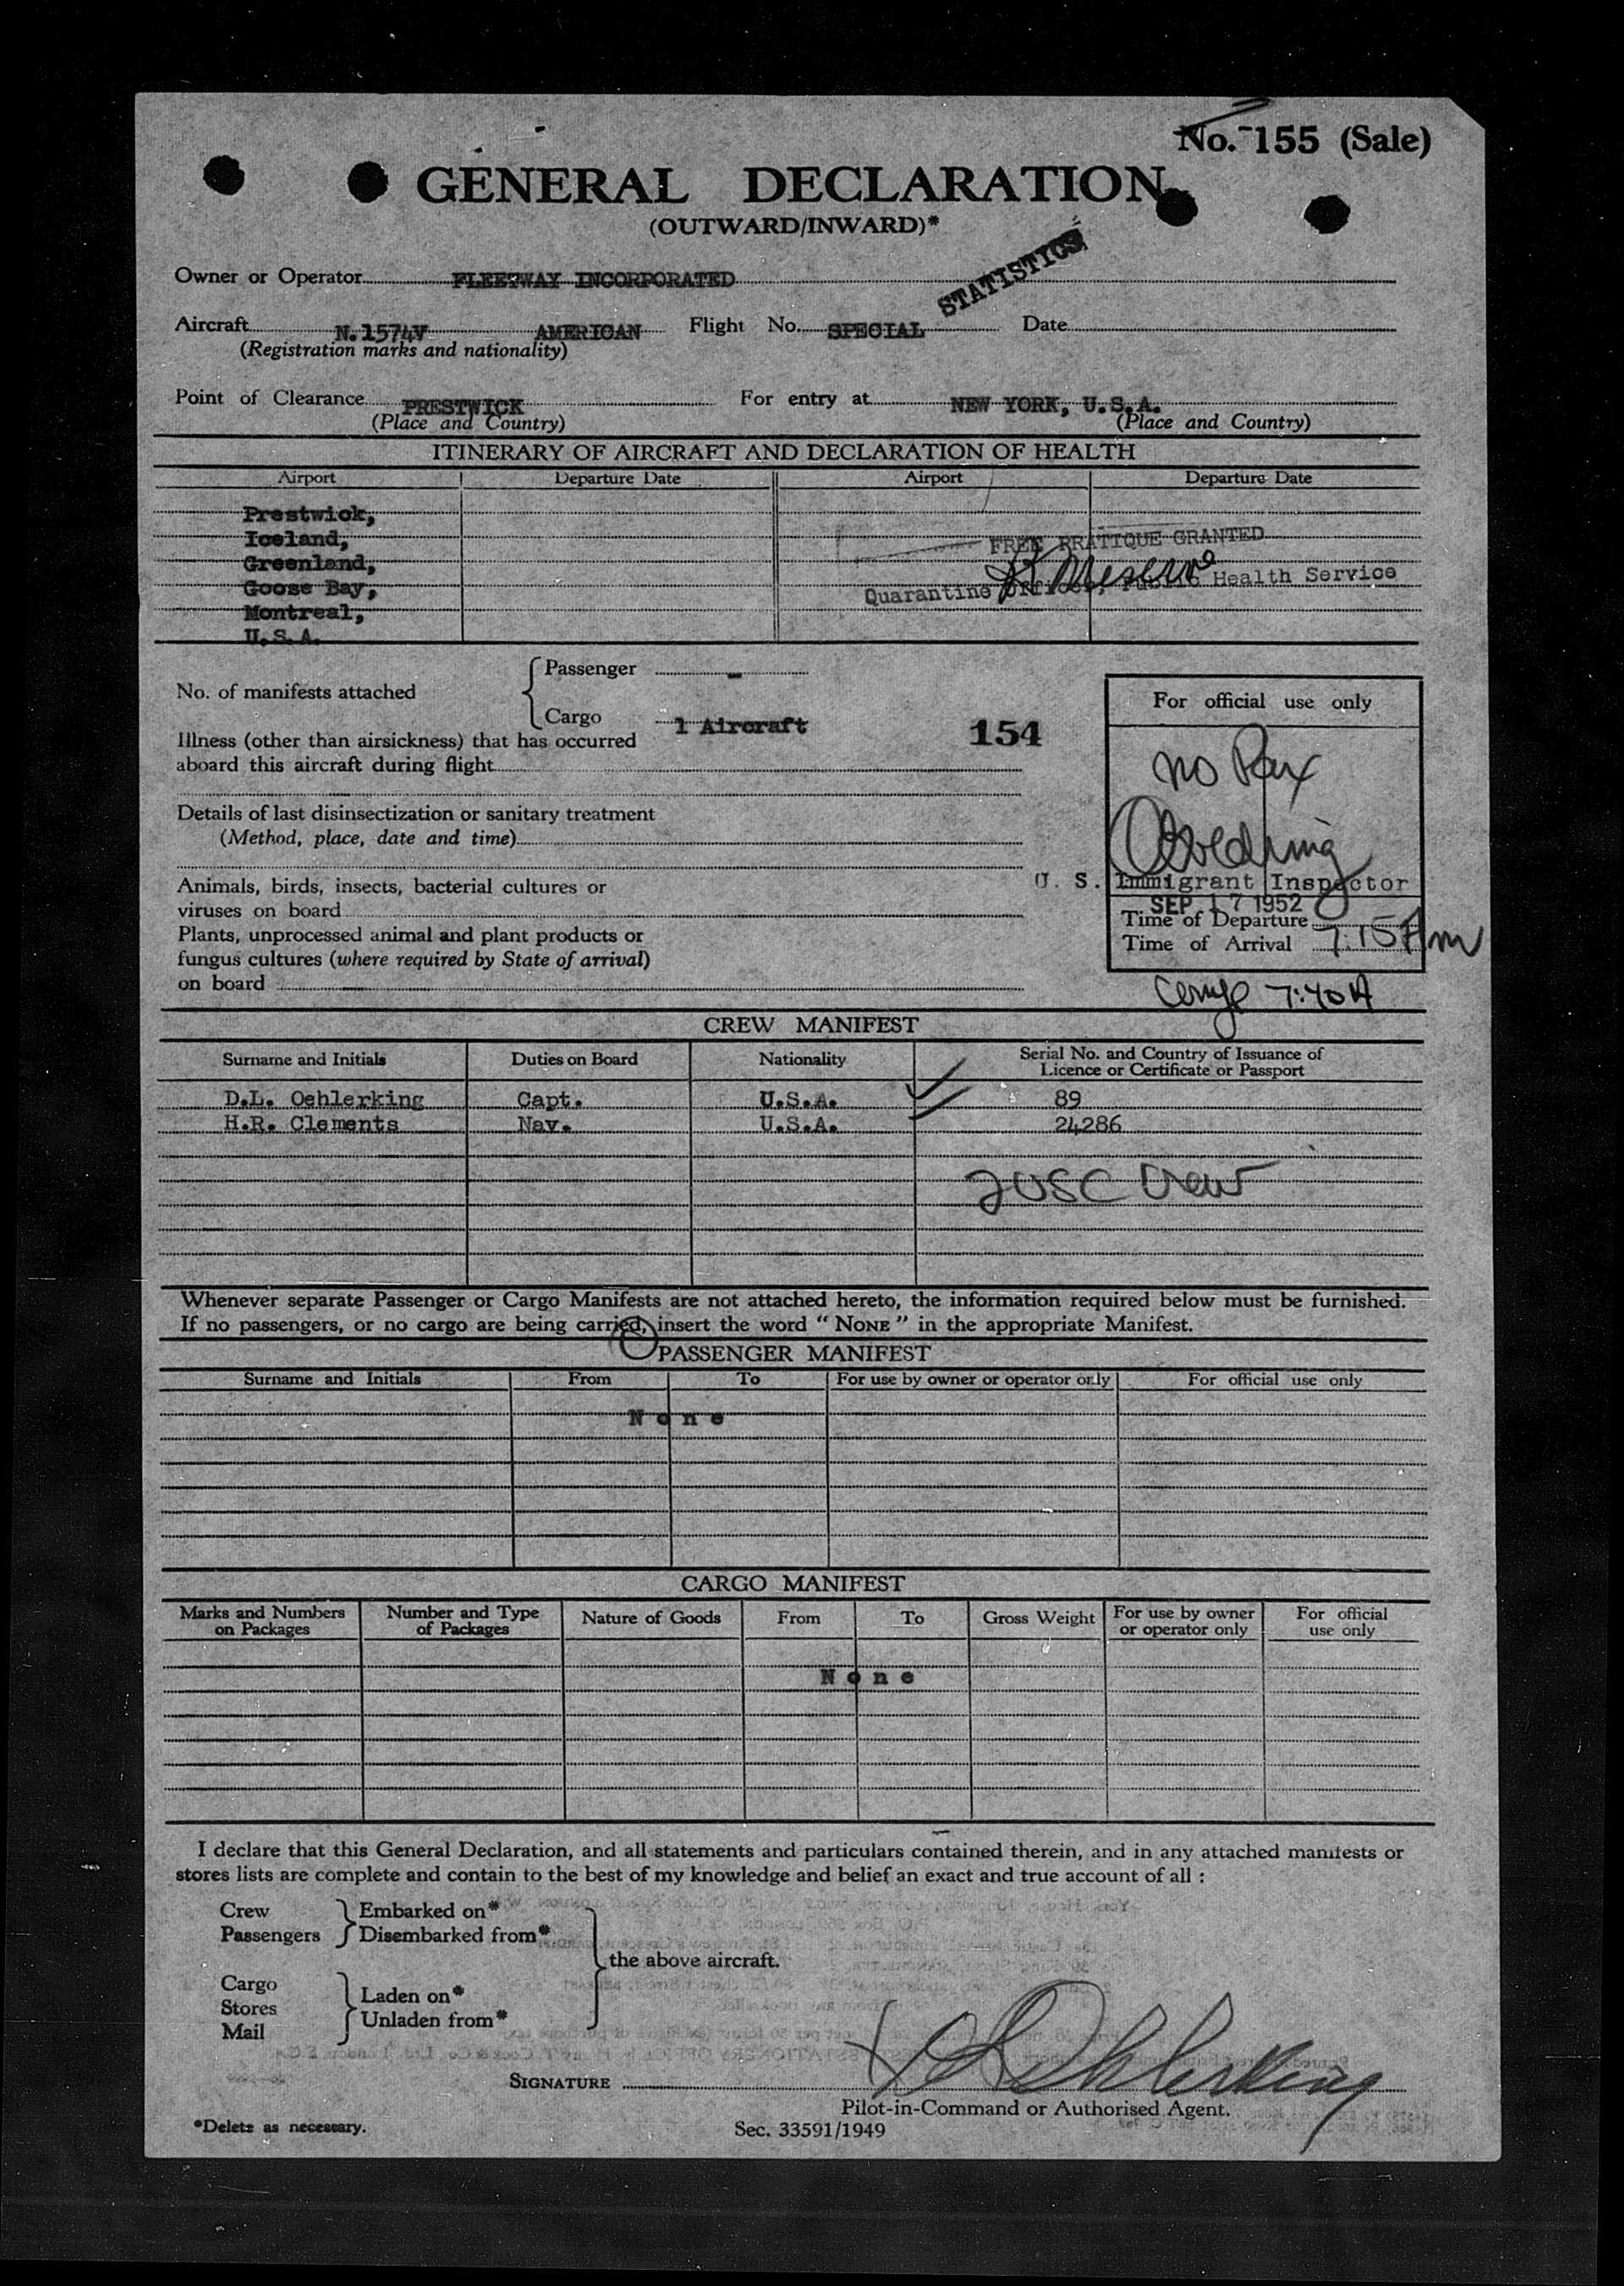 No. 155 (Sale)
GENERAL DECLARATION
(OUTWARD/INWARD)*
STATISTICS
Owner or Operator FLEETWAY INCORPORATED
Aircraft N.1574V AMERICAN Flight No. SPECIAL Date
(Registration marks and nationality)
Point of Clearance PRESTWICK For entry at NEW YORK, U.S.A.
(Place and Country) (Place and Country)
ITINERARY OF AIRCRAFT AND DECLARATION OF HEALTH
Airport Departure Date Airport Departure Date
Prestwick,
Iceland,
Greenland,
Goose Bay,
Montreal,
U.S.A.
FREE PRATIQUE GRANTED
Quarantine Officer, Public Health Service
No. of manifests attached
Passenger -
Cargo 1 Aircraft
154
Illness (other than airsickness) that has occurred
aboard this aircraft during flight
Details of last disinsectization or sanitary treatment
(Method, place, date and time)
Animals, birds, insects, bacterial cultures or
viruses on board
Plants, unprocessed animal and plant products or
fungus cultures (where required by State of arrival)
on board
For official use only
no Pax
U. S. Immigrant Inspector
SEP 17 1952
Time of Departure
Time of Arrival 7:15 Am
7:40 A
CREW MANIFEST
Surname and Initials Duties on Board Nationality Serial No. and Country of Issuance of
Licence or Certificate or Passport
D.L. Oehlerking Capt. U.S.A. 89
H.R. Clements Nav. U.S.A. 24286
2 USC Crew
Whenever separate Passenger or Cargo Manifests are not attached hereto, the information required below must be furnished.
If no passengers, or no cargo are being carried, insert the word "NONE" in the appropriate Manifest.
PASSENGER MANIFEST
Surname and Initials From To For use by owner or operator only For official use only
None
CARGO MANIFEST
Marks and Numbers on Packages Number and Type of Packages Nature of Goods From To Gross Weight For use by owner or operator only For official use only
None
I declare that this General Declaration, and all statements and particulars contained therein, and in any attached manifests or
stores lists are complete and contain to the best of my knowledge and belief an exact and true account of all :
Crew
Passengers
Embarked on*
Disembarked from*
the above aircraft.
Cargo
Stores
Mail
Laden on*
Unladen from*
SIGNATURE D L Oehlerking
Pilot-in-Command or Authorised Agent.
*Delete as necessary.
Sec. 33591/1949